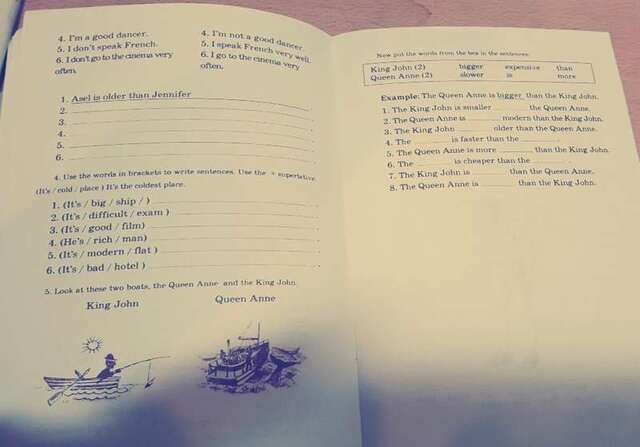 4. I'm a good dancer.
5. I don't speak French.
6. I don't go to the cinema very
often.
4. I'm not a good dancer.
5. I speak French very well.
6. I go to the cinema very
often.
1. Asel is older than Jennifer
2.
3.
4.
5.
6.
4. Use the words in brackets to write sentences. Use the + superlative.
(It's / cold / place ) It's the coldest place.
1. (It's / big / ship / )
2. (It's / difficult / exam )
3. (It's / good / film)
4. (He's / rich / man)
5. (It's / modern / flat )
6. (It's / bad / hotel )
5. Look at these two boats, the Queen Anne and the King John.
King John
Queen Anne
Now put the words from the box in the sentences:
King John (2) bigger expensive than
Queen Anne (2) slower is more
Example: The Queen Anne is bigger than the King John.
1. The King John is smaller ______ the Queen Anne.
2. The Queen Anne is ______ modern than the King John.
3. The King John ______ older than the Queen Anne.
4. The ______ is faster than the ______.
5. The Queen Anne is more ______ than the King John.
6. The ______ is cheaper than the ______.
7. The King John is ______ than the Queen Anne.
8. The Queen Anne is ______ than the King John.